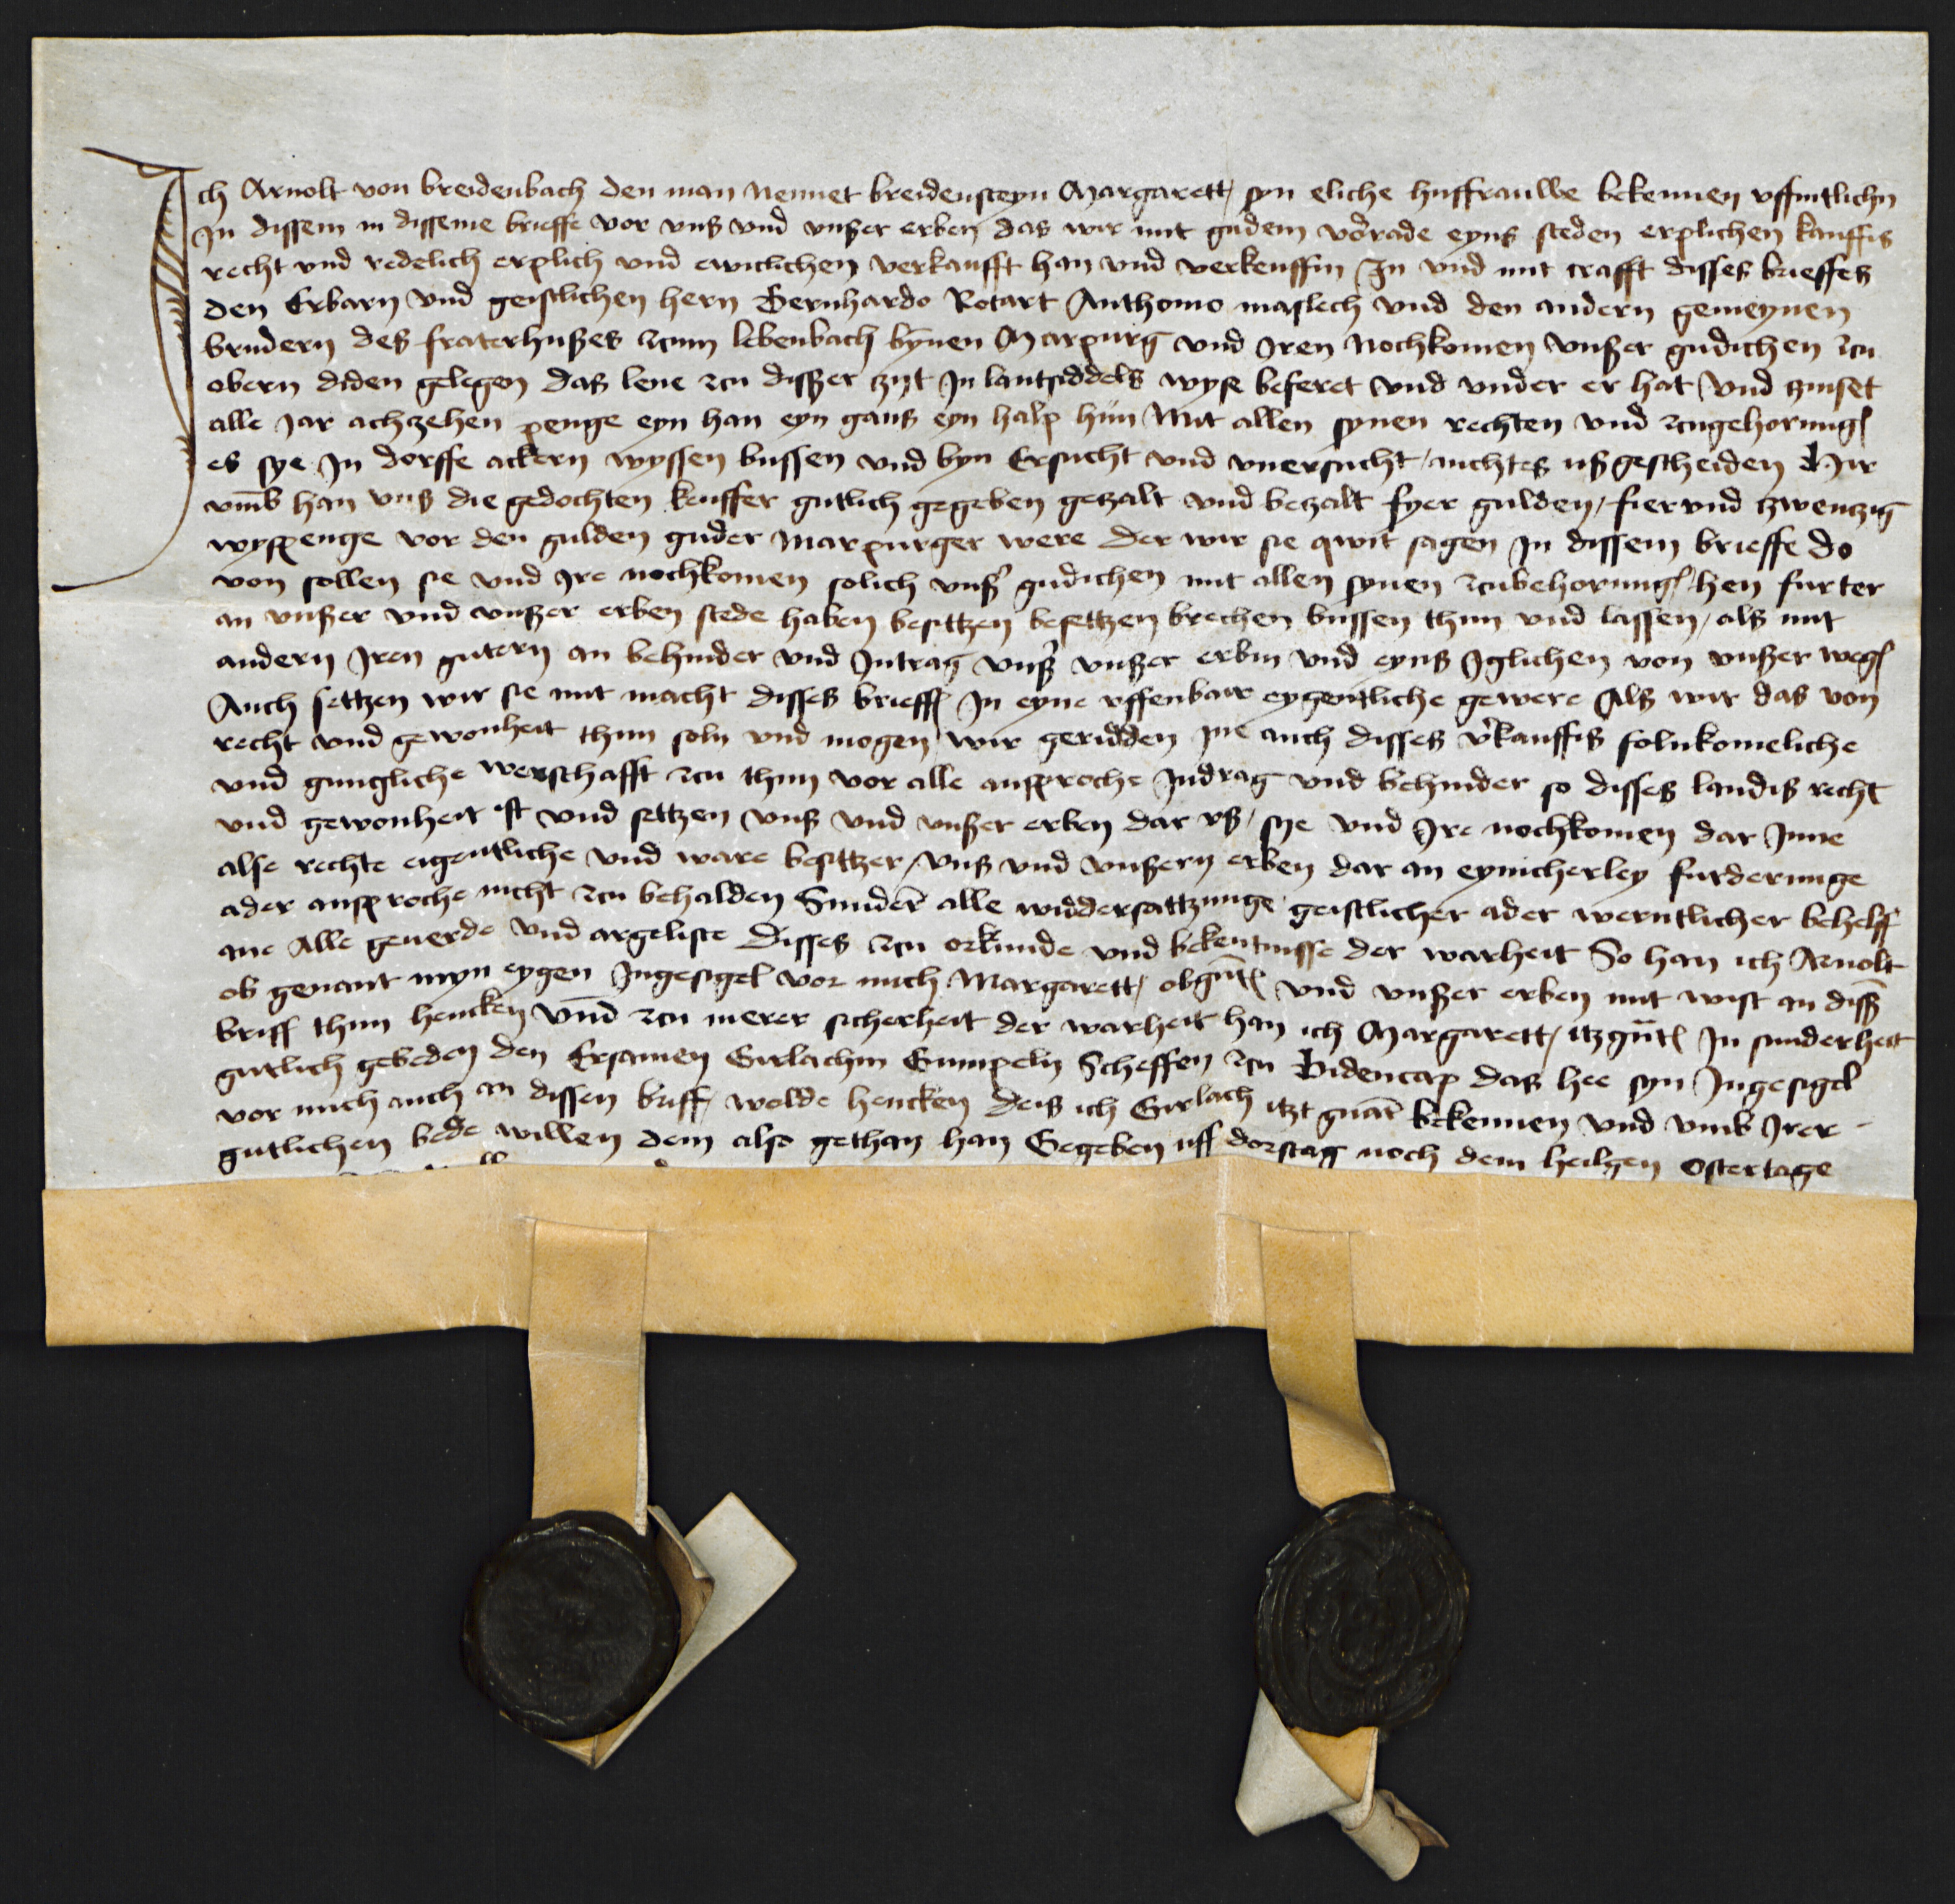 Ich Arnolt von breidenbach den man nennet breidensteyn Margarett syn eliche husfrauwe bekennen uffintlichn
In dissem in disseme brieffe vor uns und unßer erben das wir mit gudem vorrade eyns steden erplichen kauffis
recht und redelich erplich und ewiclichen verkaufft han und verkeuffin In und mit crafft disses brieffes
den Erbarn und geistlichen hern Bernhardo Rotart Anthonio maslech und den andern gemeynen
brudern des fraterhußes zcum lebenbach bynen Marpurg und Iren nochkomen unßer gudichen zcu
obern diden gelegen das lene zcu disser zyt In lantsiddels wyse beseret und under er hat und zinset
alle Jar achzehen penge eyn han eyn gans eyn halp hun Mit allen synen rechten und zcugehorung
es sye In dorffe ackern wyssen bussen und byn Ersucht und unersucht nichtes usgescheiden Hir
umb han uns die gedochten keuffer gutlich gegeben gezalt und bezalt fyer gulden, fier und zwenzig
wyspenge vor den gulden guder marpurger were der wir sie qwit sagen In dissem brieffe do
von sollen sie und Ire nochkomen solich unß gudichen mit allen synen zcubehorung hen furter
an unßer und unßer erben stede haben besittzen besettzen brechen bussen thun und lassen, als mit
andern Iren gutern an behinder und Intrag unß unßer erbin und eyns Iglichen von unßer weg
Auch settzen wir sie mit macht disses brieff In eyne uffenbair eygentliche gewere Als wir das von
recht und gewonheit thun soln und mogen wir geridden sie auch disses vkauffis folnkomeliche
und gungliche werschafft zcu thun vor alle ansproche Indrag und behinder so disses landis recht
und gewonheit ist und settzen uns und unßer erben dar us, sye und Ire nochkomen dar Inne
alse rechte eigentliche und ware besittzer, uns und unßern erben dar an eynicherley furderunge
ader ansproche nicht zcu behalden Sunder alle widdersattzunge geistlicher ader werntlicher behelff
ane Alle geuerde und argeliste Disses zcu orkunde und bekentnisse der warheit So han ich Arnolt
ob genant myn eygen Ingesigel vor mich Margarett obgnt und unßer erben mit wist an diss
briff thun hencken und zcu merer sicherheit der warheit han ich Margarett, itzgnt In sunderheit
gutlich gebeden den Ersamen Girlachin Gumpeln Scheffen zcu Bidencap das hee syn Ingesigel
vor mich auch an dissen briff, wolde hencken Deis ich Girlach itzt gnat bekennen und umb Irer
gutlichen bede willen dem also gethan han Gegeben uff dorstag noch dem heilgen Ostertage